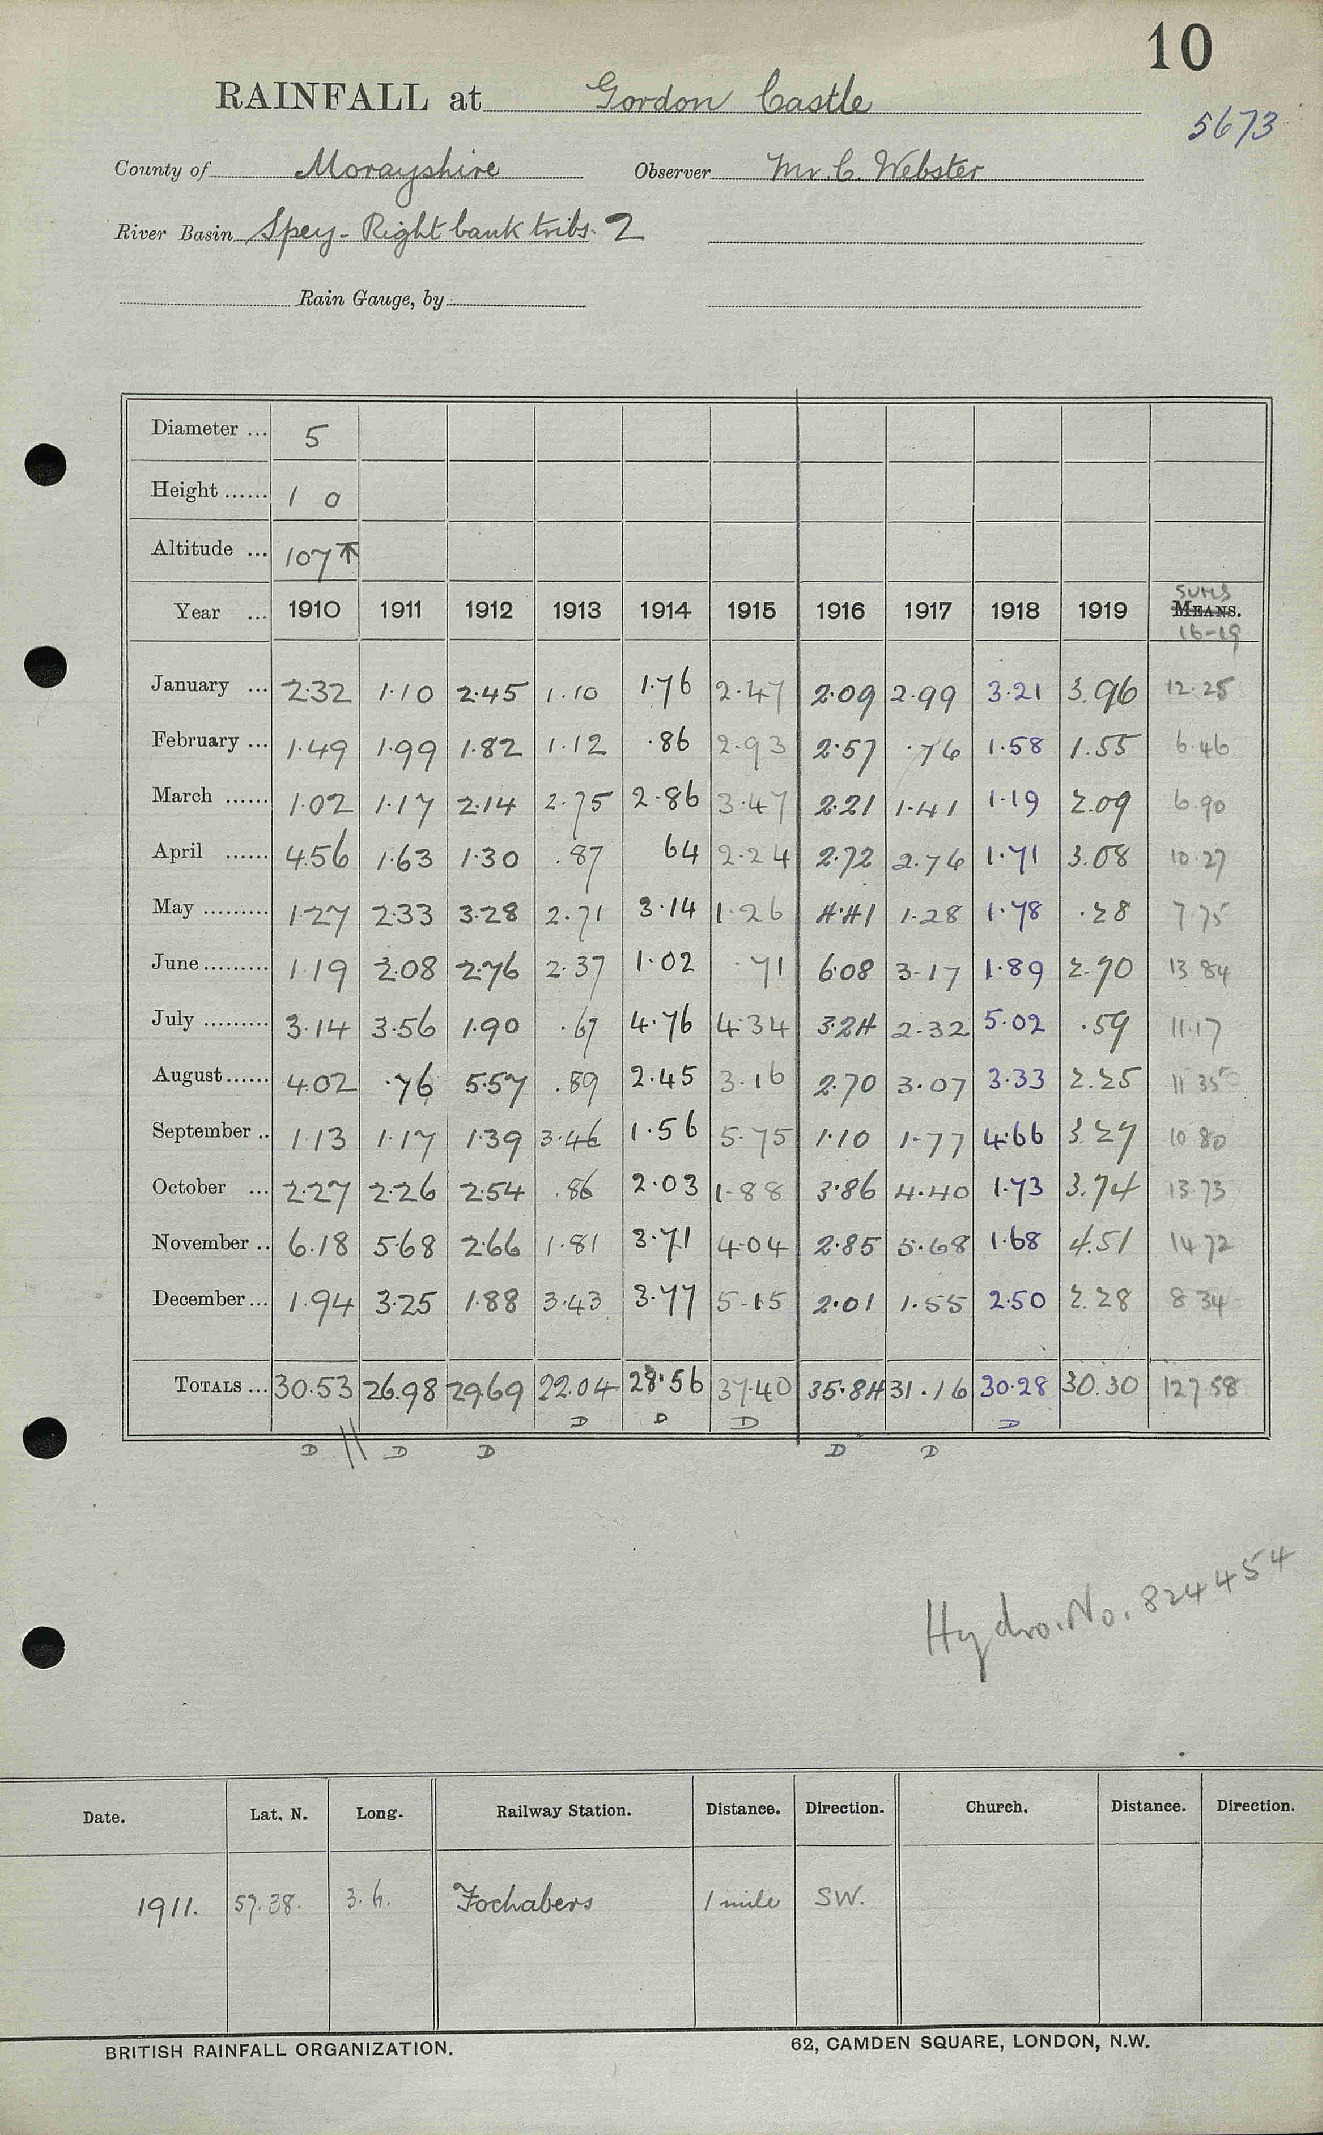 10
RAINFALL at Gordon Castle
5673
County of Morayshire Observer Mr. C. Webster
River Basin Spey - Right bank tribs. 2
Rain Gauge, by
Diameter ... 5
Height ...... 1 0
Altitude ... 107 ↑
Year ... 1910 1911 1912 1913 1914 1915 1916 1917 1918 1919 SUMS MEANS. 16-19
January ... 2.32 1.10 2.45 1.10 1.76 2.47 2.09 2.99 3.21 3.96 12.25
February ... 1.49 1.99 1.82 1.12 .86 2.93 2.57 .76 1.58 1.55 6.46
March ...... 1.02 1.17 2.14 2.75 2.86 3.47 2.21 1.41 1.19 2.09 6.90
April ...... 4.56 1.63 1.30 .87 64 2.24 2.72 2.76 1.71 3.08 10.27
May ......... 1.27 2.33 3.28 2.71 3.14 1.26 4.41 1.28 1.78 .28 7.75
June ......... 1.19 2.08 2.76 2.37 1.02 .71 6.08 3.17 1.89 2.70 13 84
July ......... 3.14 3.56 1.90 .67 4.76 4.34 3.24 2.32 5.02 .59 11.17
August ...... 4.02 .76 5.57 .89 2.45 3.16 2.70 3.07 3.33 2.25 11 35
September .. 1.13 1.17 1.39 3.46 1.56 5.75 1.10 1.77 4.66 3.27 10 80
October ... 2.27 2.26 2.54 .86 2.03 1.88 3.86 4.40 1.73 3.74 13.73
November .. 6.18 5.68 2.66 1.81 3.71 4.04 2.85 5.68 1.68 4.51 14 72
December ... 1.94 3.25 1.88 3.43 3.77 5.15 2.01 1.55 2.50 2.28 8 34
TOTALS ... 30.53 26.98 29.69 22.04 28.56 37.40 35.84 31.16 30.28 30.30 127 58
D D D D
D || D D D D
Hydro. No. 824454
Date. Lat. N. Long. Railway Station. Distance. Direction. Church. Distance. Direction.
1911. 57.38. 3.6. Fochabers 1 mile SW.
BRITISH RAINFALL ORGANIZATION. 62, CAMDEN SQUARE, LONDON, N.W.